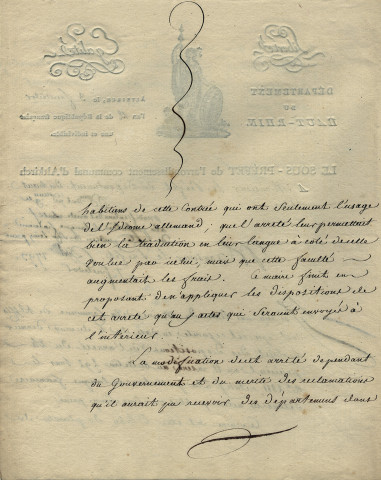 habitens de cette Contrée qui ont seulement l'usage
de l'Ideome allemand, que l'arreté leur permettoit
bien la traduction en leur langue a coté de celle
voulue par icelui, mais que cette faculté
augmentait les fraix. Ce maire finit en
proposant de n'appliquer les dispositions de
cet arreté qu'aux actes qui seraient envoyé à
l'intérieur.
La modification de cet arreté dependant
du Gouvernement et du merite des reclamations
qu'il auroit pu recevoir des départemens dans